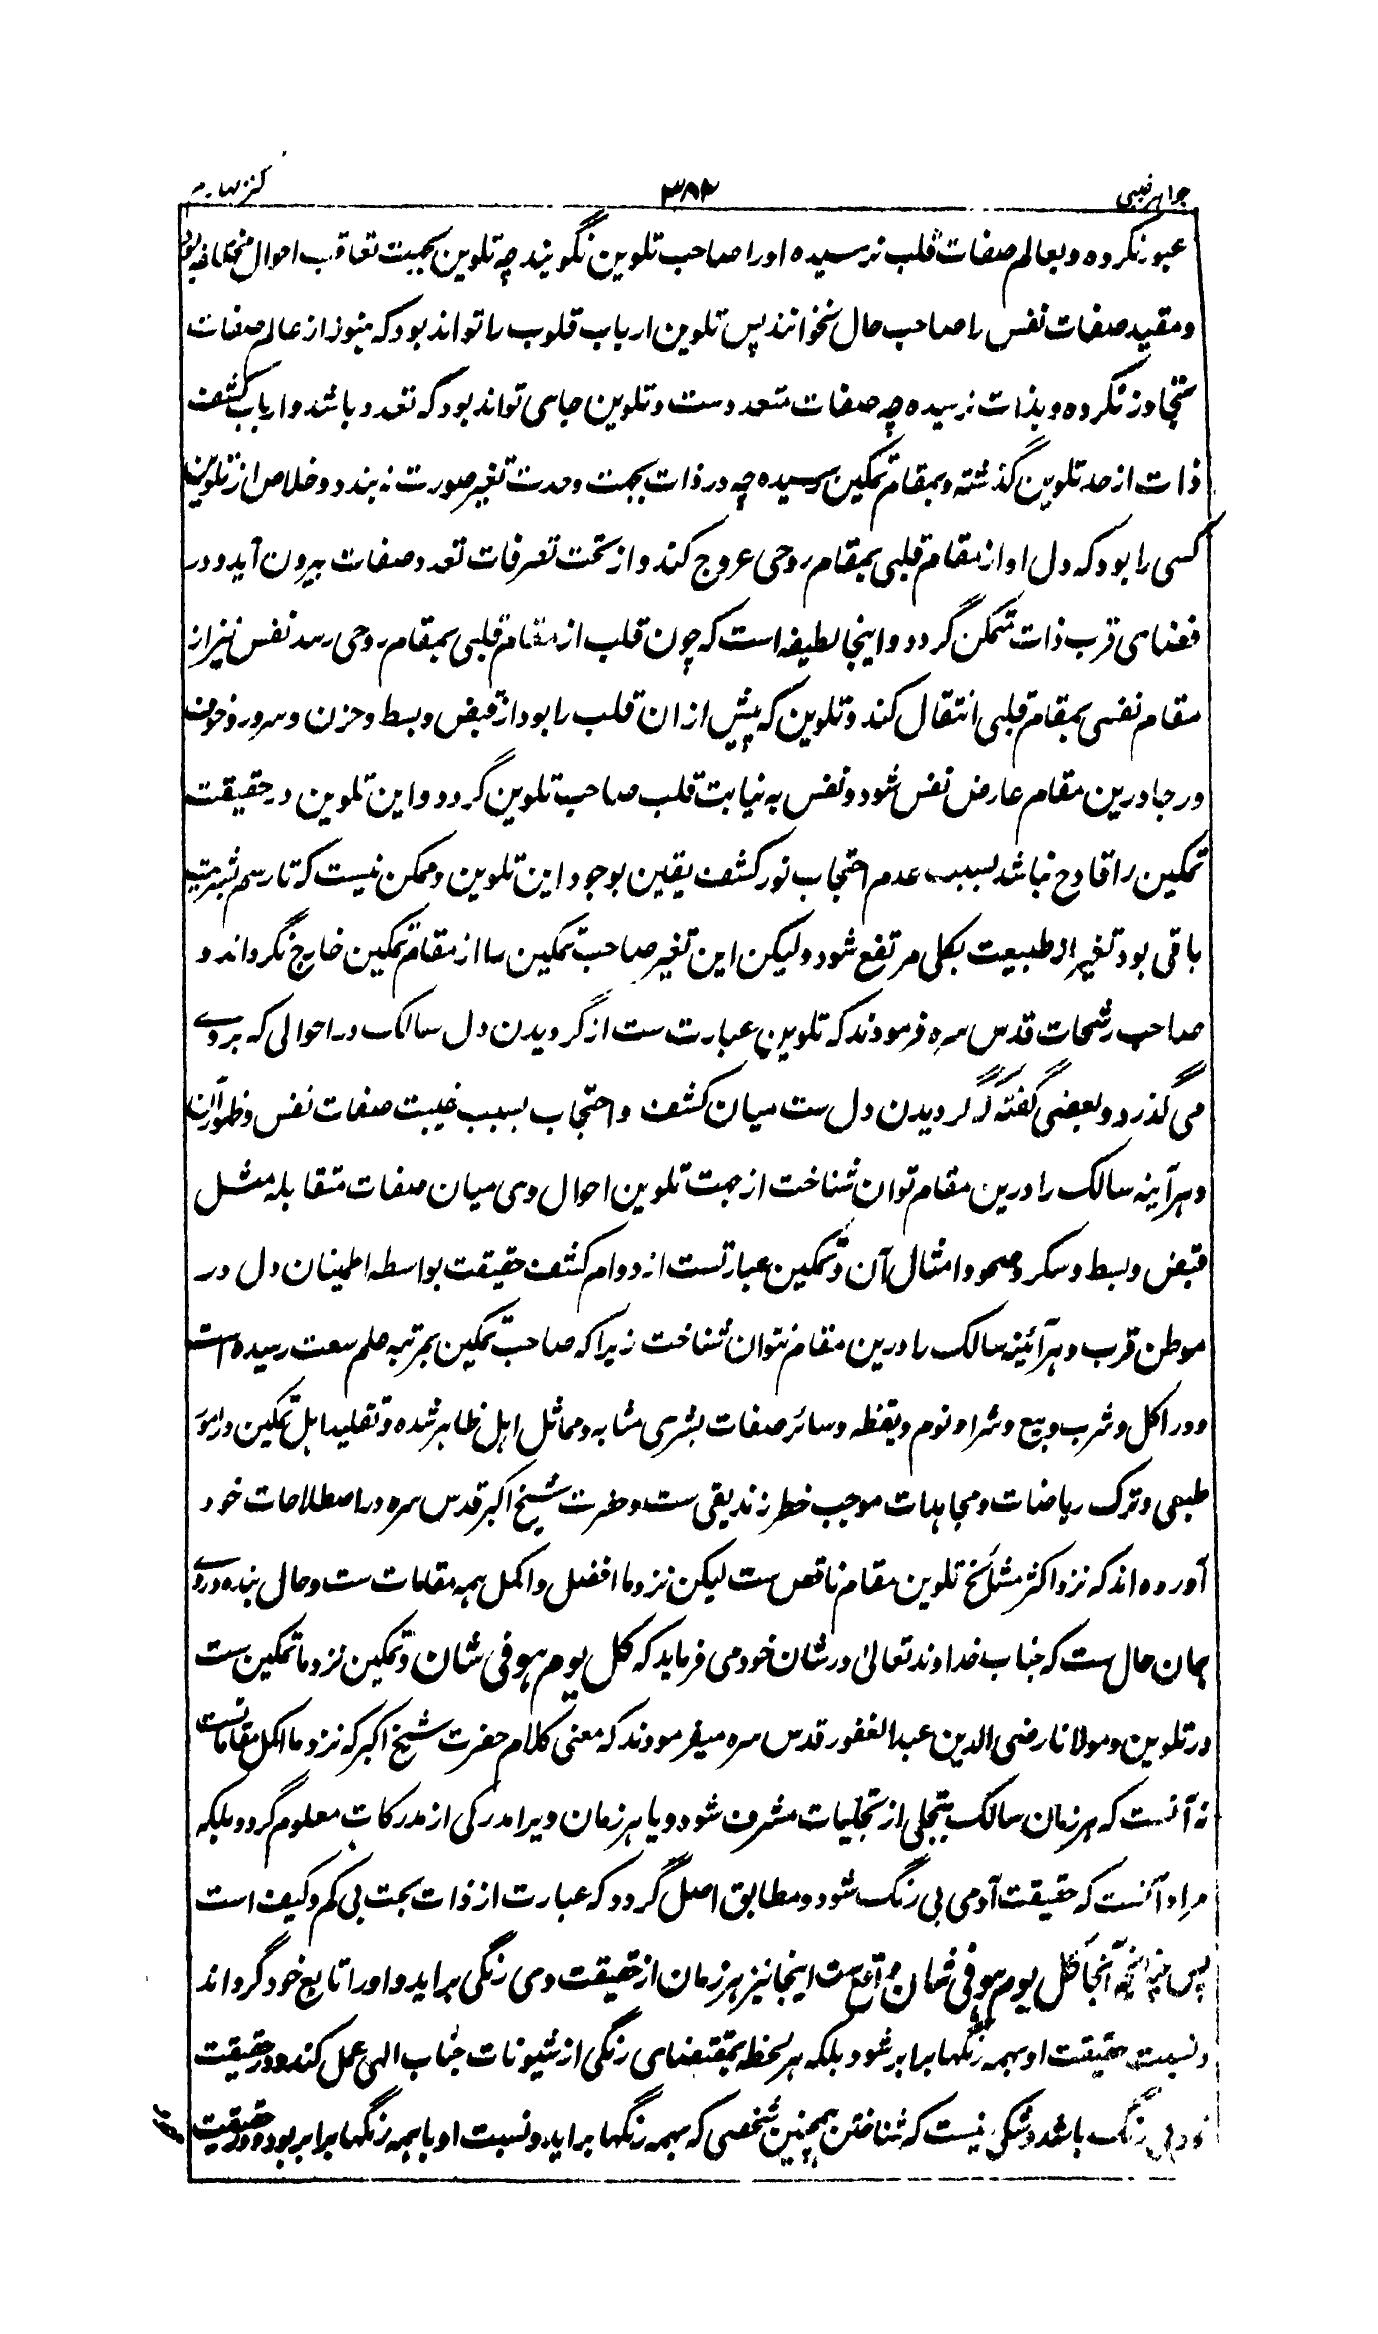 جواهر غیبی ۳۸۲
عبور نکرده و بعالم صفات قلب نرسیده اورا صاحب تلوین نگویند چه تلوین بجهت تعاقب احوال مختلفه بود
و مقید صفات نفس را صاحب حال نخوانند پس تلوین ارباب قلوب را تواند بود که هنوز از عالم صفات
متجاوز نکرده و بذات نرسیده چه صفات متعددست و تلوین جای تواند بود که تعدد باشد و ارباب کشف
ذات از حد تلوین گذشته و بمقام تمکین رسیده چه در ذات بجهت وحدت تغیر صورت نه بندد و خلاص از تلوین
کسی را بود که دل او از مقام قلبی بمقام روحی عروج کند و از تحت تصرفات تعدد صفات بیرون آید و در
فضای قرب ذات متمکن گردد و اینجا لطیفه است که چون قلب از مقام قلبی بمقام روحی رسد نفس نیز از
مقام نفسی بمقام قلبی انتقال کند و تلوین که پیش ازان قلب را بود از قبض و بسط و حزن و سرور و خوف
و رجا درین مقام عارض نفس شود و نفس به نیابت قلب صاحب تلوین گردد و این تلوین در حقیقت
تمکین را قادح نباشد بسبب عدم احتجاب نور کشف یقین بوجود این تلوین و ممکن نیست که تا رسم بشریت
باقی بود تغیر از طبیعت بکلی مرتفع شود ولیکن این تغیر صاحب تمکین را از مقام تمکین خارج نگرداند و
صاحب رشحات قدس سره فرمودند که تلوین عبارت ست از گردیدن دل سالک در احوالی که بروے
می گذرد و بعضی گفته که گردیدن دل ست میان کشف و احتجاب بسبب غیبت صفات نفس و ظهور آن
و هرآینه سالک را درین مقام توان شناخت از جهت تلوین احوال وی میان صفات متقابله مثل
قبض و بسط و سکر و صحو و امثال آن و تمکین عبارتست از دوام کشف حقیقت بواسطه اطمینان دل در
موطن قرب و هرآئینه سالک را درین مقام نتوان شناخت زیرا که صاحب تمکین بمرتبه علم سعت رسیده است
و در اکل و شرب و بیع و شرا و نوم و یقظه و سائر صفات بشری مشابه و مماثل اهل ظاهر شده و تقلید اهل تمکین در امور
طبعی و ترک ریاضات و مجاهدات موجب خطر زندیقی ست و حضرت شیخ اکبر قدس سره در اصطلاحات خود
آورده اند که نزد اکثر مشائخ تلوین مقام ناقص ست لیکن نزد ما افضل و اکمل همه مقامات ست و حال بنده در وے
همان حال ست که جناب خداوند تعالیٰ در شان خود می فرماید که کل یوم هو فی شان و تمکین نزد ما تمکین ست
در تلوین و مولانا رضی الدین عبدالغفور قدس سره میفرمودند که معنی کلام حضرت شیخ اکبر که نزد ما اکمل مقامات ست
نه آنست که هر زمان سالک بتجلی از تجلیات مشرف شود و یا هر زمان ویرا مدرکی از مدرکات معلوم گردد بلکه
مراد آنست که حقیقت آدمی بی رنگ شود و مطابق اصل گردد که عبارت از ذات بحت بی کم و کیف است
پس چنانچه آنجا کل یوم هو فی شان واقع ست اینجا نیز هر زمان از حقیقت وی رنگی براید و اورا تابع خود گرداند
و نسبت حقیقت او بهمه رنگها برابر شود بلکه هر لحظه بمقتضای رنگی از شیونات جناب الهی عمل کند و در حقیقت
خود بی رنگ باشد و شکی نیست که شناختن همچنین شخصی که بهمه رنگها براید و نسبت او با همه رنگها برابر بود و در حقیقت